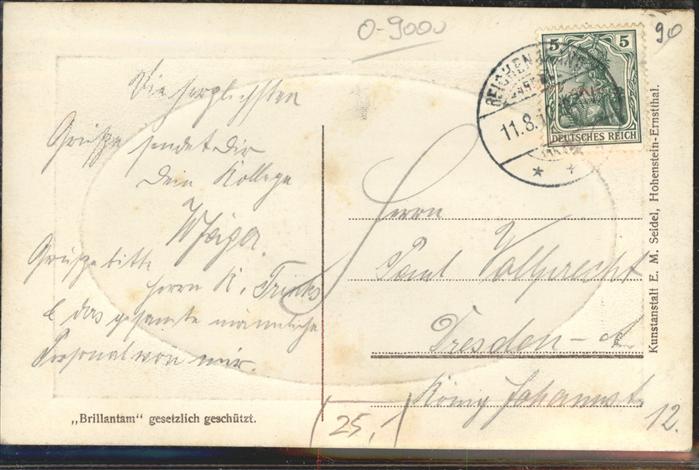 0-9000
90
5 5
DEUTSCHES REICH
11.8.1
Die herzlichsten
Grüße sendet Dir
Dein Kollege
Grüße bitte
Herrn K. Trinks
& das gesamte männliche
Personal von mir.
Herrn
Paul Volprecht
Dresden-A.
König Johannstr.
12.
"Brillantam" gesetzlich geschützt.
25,-
Kunstanstalt E. M. Seidel, Hohenstein-Ernstthal.